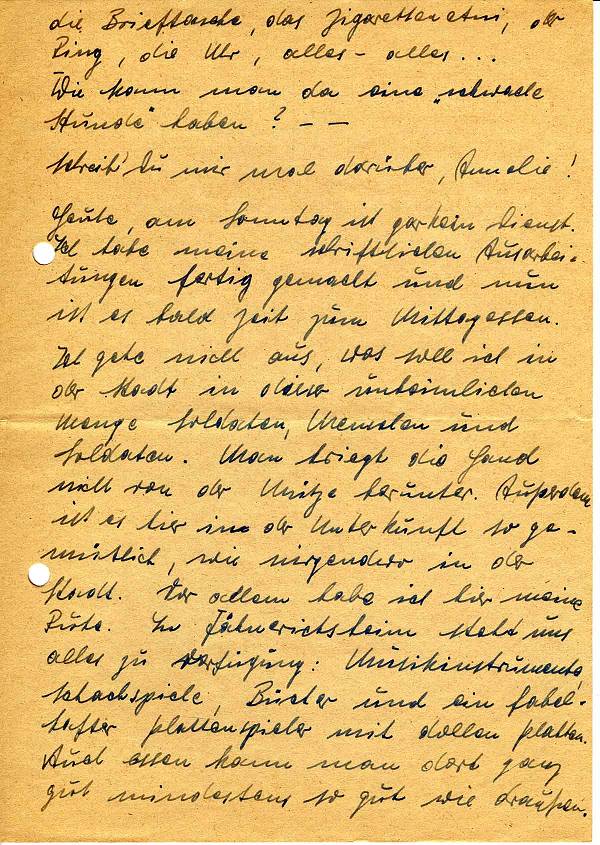 die Brieftasche, das Zigarettenetui, der
Ring, die Uhr, alles - alles...
Wie kann man da eine „schwache
Stunde“ haben? - -
Schreib' Du mir mal darüber, Annelie!
Heute, am Sonntag ist gar kein Dienst.
Ich habe meine schriftlichen Ausarbei-
tungen fertig gemacht und nun
ist es bald Zeit zum Mittagessen.
Ich gehe nicht aus, was soll ich in
der Stadt in dieser unheimlichen
Menge Soldaten, Menschen und
Soldaten. Man kriegt die Hand
nicht von der Mütze herunter. Außerdem
ist es hier in der Unterkunft so ge-
mütlich, wie nirgendwo in der
Stadt. Vor allem habe ich hier meine
Ruhe. Im Fähnrichsheim steht uns
alles zu Verfügung: Musikinstrumente,
Schachspiele, Bücher und ein fabel-
hafter Plattenspieler mit dollen Platten.
Auch essen kann man dort ganz
gut mindestens so gut wie draußen.